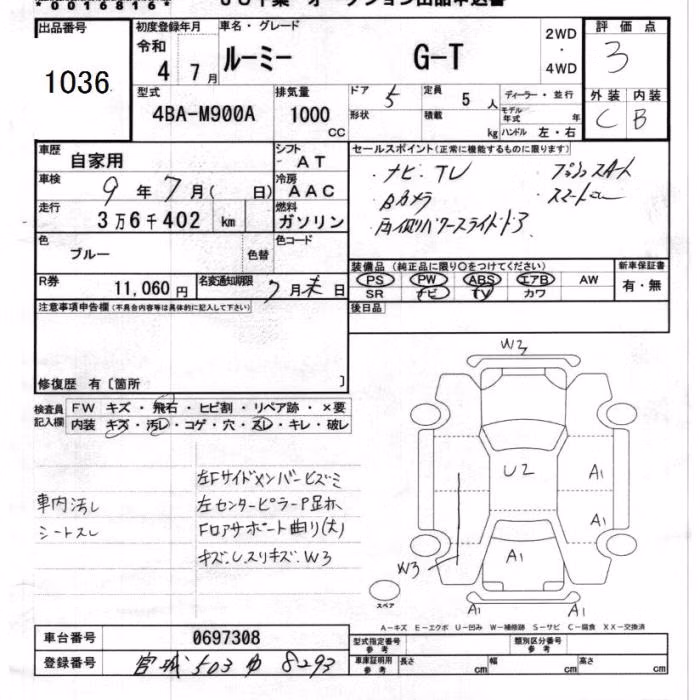 *00168161*
出品番号
1036
初度登録年月
令和
4 7月
車名・グレード
ルーミー G-T
2WD
・
4WD
評価点
3
外装 内装
C B
型式
4BA-M900A
排気量
1000
CC
ドア 5
定員 5 人
ディーラー・並行
形状
積載 kg
モデル年式 年
ハンドル 左・右
車歴
自家用
シフト
AT
車検
9年7月( 日)
冷房
AAC
走行
3万6千402 km
燃料
ガソリン
色
ブルー
色替
色コード
R券
11,060円
名変通知期限
7月末日
セールスポイント(正常に機能するものに限ります)
・ナビ・TV
・Bカメラ
・両側パワースライドドア
装備品(純正品に限り○をつけてください)
PS PW ABS エアB AW
SR ナビ TV カワ
新車保証書
有・無
後日品
注意事項申告欄(不具合内容等は具体的に記入して下さい)
修復歴 有〔箇所 〕
検査員記入欄
FW キズ・飛石・ヒビ割・リペア跡・×要
内装 キズ・汚レ・コゲ・穴・スレ・キレ・破レ
車内汚し
シートスレ
左Fサイドメンバーヒズミ
左センターピラーP
Fロアサポート曲り(大)
キズ、スリキズ、W3
W3
U2
A1
A1
A1
W3
A1
A1
スペア
A-キズ E-エクボ U-凹み W-補修跡 S-サビ C-腐食 XX-交換済
車台番号
0697308
登録番号
宮城 503 ゆ 8293
型式指定番号
参考
類別区分番号
参考
車庫証明用
参考
長さ cm
幅 cm
高さ cm